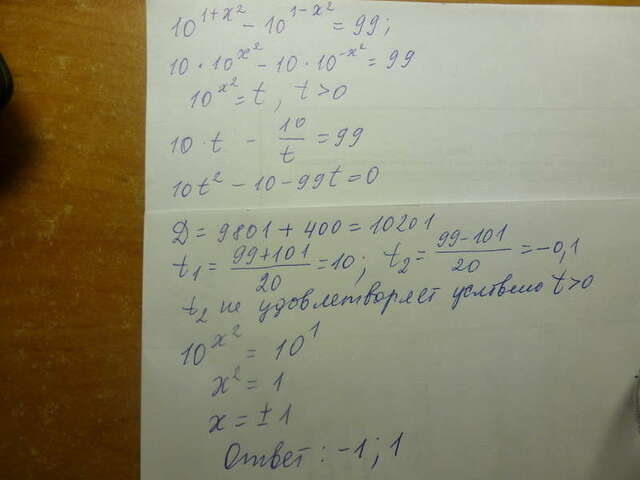 10^{1+x^2} - 10^{1-x^2} = 99;
10 · 10^{x^2} - 10 · 10^{-x^2} = 99
10^{x^2} = t, t > 0
10 · t - \frac{10}{t} = 99
10t^2 - 10 - 99t = 0
D = 9801 + 400 = 10201
t_1 = \frac{99+101}{20} = 10; t_2 = \frac{99-101}{20} = -0,1
t_2 не удовлетворяет условию t > 0
10^{x^2} = 10^1
x^2 = 1
x = ± 1
Ответ: -1; 1